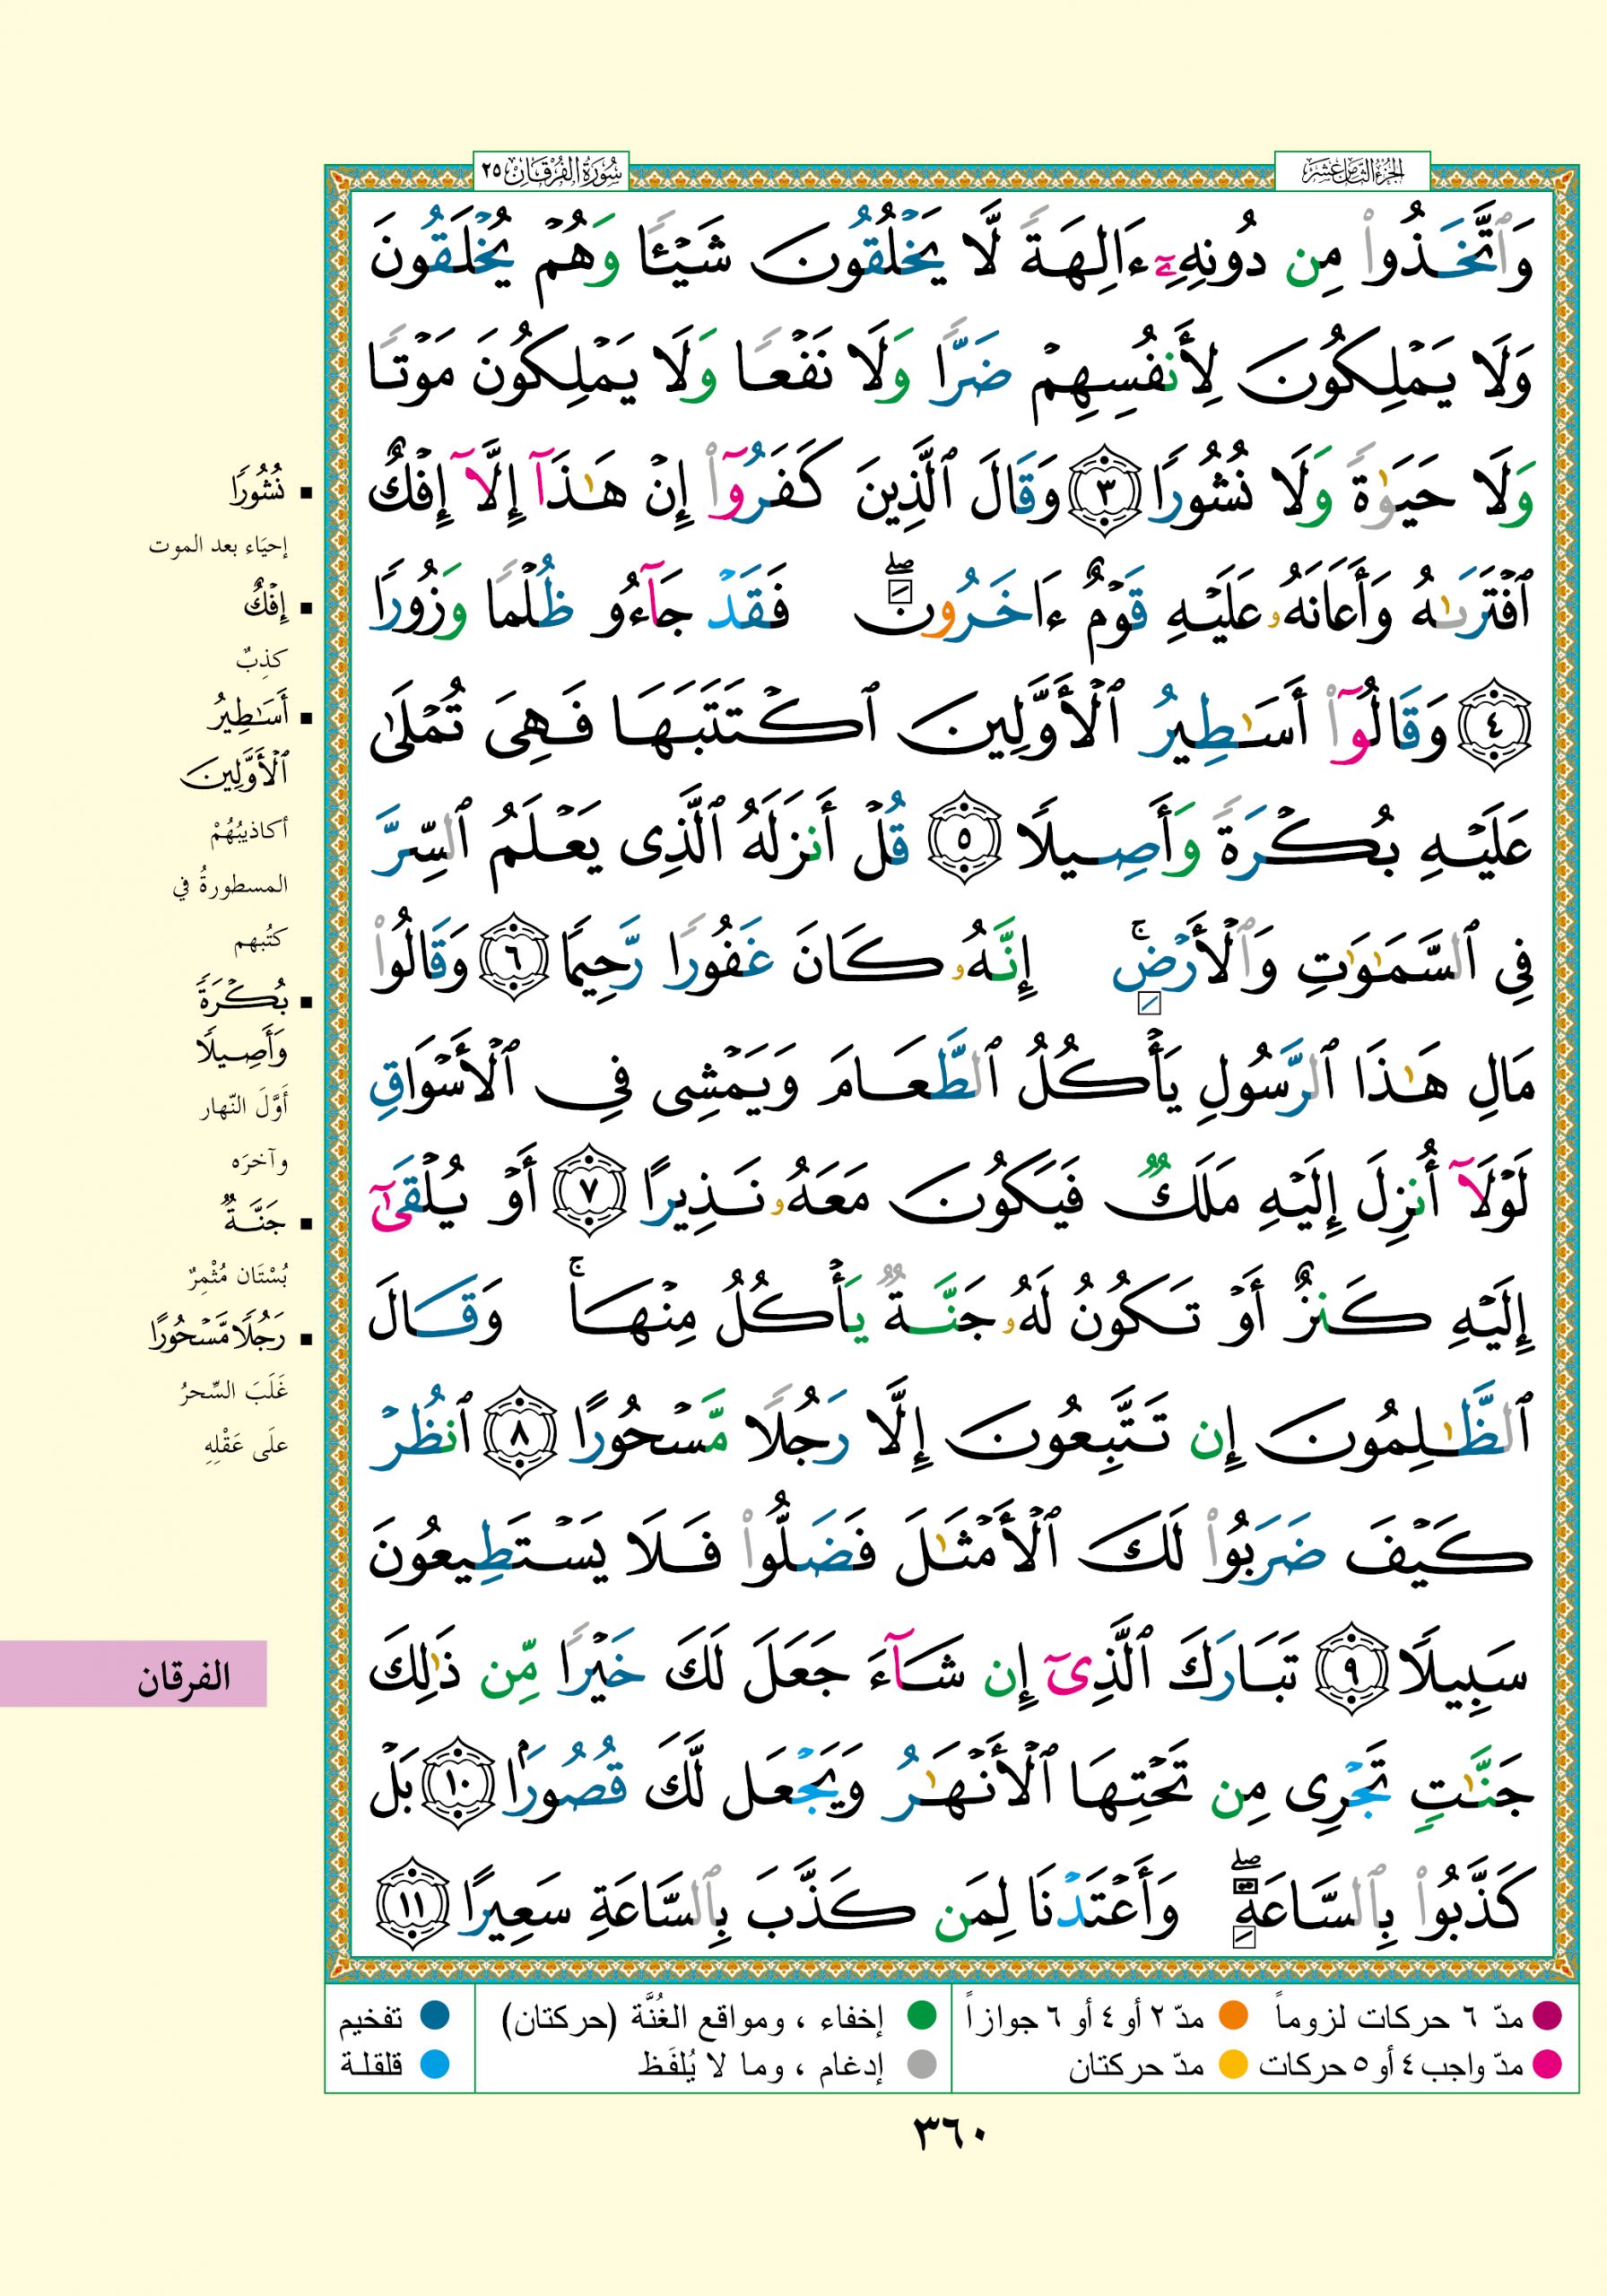 الجزء الثامن عشر
سورة الفرقان ٢٥
وَٱتَّخَذُوا۟ مِن دُونِهِۦٓ ءَالِهَةً لَّا يَخْلُقُونَ شَيْـًٔا وَهُمْ يُخْلَقُونَ
وَلَا يَمْلِكُونَ لِأَنفُسِهِمْ ضَرًّا وَلَا نَفْعًا وَلَا يَمْلِكُونَ مَوْتًا
وَلَا حَيَوٰةً وَلَا نُشُورًا ٣ وَقَالَ ٱلَّذِينَ كَفَرُوٓا۟ إِنْ هَـٰذَآ إِلَّآ إِفْكٌ
ٱفْتَرَىٰهُ وَأَعَانَهُۥ عَلَيْهِ قَوْمٌ ءَاخَرُونَ ۖ فَقَدْ جَآءُو ظُلْمًا وَزُورًا
٤ وَقَالُوٓا۟ أَسَـٰطِيرُ ٱلْأَوَّلِينَ ٱكْتَتَبَهَا فَهِىَ تُمْلَىٰ
عَلَيْهِ بُكْرَةً وَأَصِيلًا ٥ قُلْ أَنزَلَهُ ٱلَّذِى يَعْلَمُ ٱلسِّرَّ
فِى ٱلسَّمَـٰوَٰتِ وَٱلْأَرْضِ ۚ إِنَّهُۥ كَانَ غَفُورًا رَّحِيمًا ٦ وَقَالُوا۟
مَالِ هَـٰذَا ٱلرَّسُولِ يَأْكُلُ ٱلطَّعَامَ وَيَمْشِى فِى ٱلْأَسْوَاقِ
لَوْلَآ أُنزِلَ إِلَيْهِ مَلَكٌ فَيَكُونَ مَعَهُۥ نَذِيرًا ٧ أَوْ يُلْقَىٰٓ
إِلَيْهِ كَنزٌ أَوْ تَكُونُ لَهُۥ جَنَّةٌ يَأْكُلُ مِنْهَا ۚ وَقَالَ
ٱلظَّـٰلِمُونَ إِن تَتَّبِعُونَ إِلَّا رَجُلًا مَّسْحُورًا ٨ ٱنظُرْ
كَيْفَ ضَرَبُوا۟ لَكَ ٱلْأَمْثَـٰلَ فَضَلُّوا۟ فَلَا يَسْتَطِيعُونَ
سَبِيلًا ٩ تَبَارَكَ ٱلَّذِىٓ إِن شَآءَ جَعَلَ لَكَ خَيْرًا مِّن ذَٰلِكَ
جَنَّـٰتٍ تَجْرِى مِن تَحْتِهَا ٱلْأَنْهَـٰرُ وَيَجْعَل لَّكَ قُصُورًۢا ١٠ بَلْ
كَذَّبُوا۟ بِٱلسَّاعَةِ ۖ وَأَعْتَدْنَا لِمَن كَذَّبَ بِٱلسَّاعَةِ سَعِيرًا ١١
▪ نُشُورًا
إحيَاء بعد الموت
▪ إِفْكٌ
كذِبٌ
▪ أَسَـٰطِيرُ
ٱلْأَوَّلِينَ
أكاذيبُهُمْ
المسطورةُ في
كتُبهم
▪ بُكْرَةً
وَأَصِيلًا
أَوَّلَ النّهار
وآخرَه
▪ جَنَّةٌ
بُسْتَان مُثْمِرٌ
▪ رَجُلًا مَّسْحُورًا
غَلَبَ السِّحرُ
علَى عَقْلِهِ
الفرقان
مدّ ٦ حركات لزوماً
مدّ ٢ أو ٤ أو ٦ جوازاً
إخفاء ، ومواقع الغُنَّة (حركتان)
تفخيم
مدّ واجب ٤ أو ٥ حركات
مدّ حركتان
إدغام ، وما لا يُلفَظ
قلقلة
٣٦٠